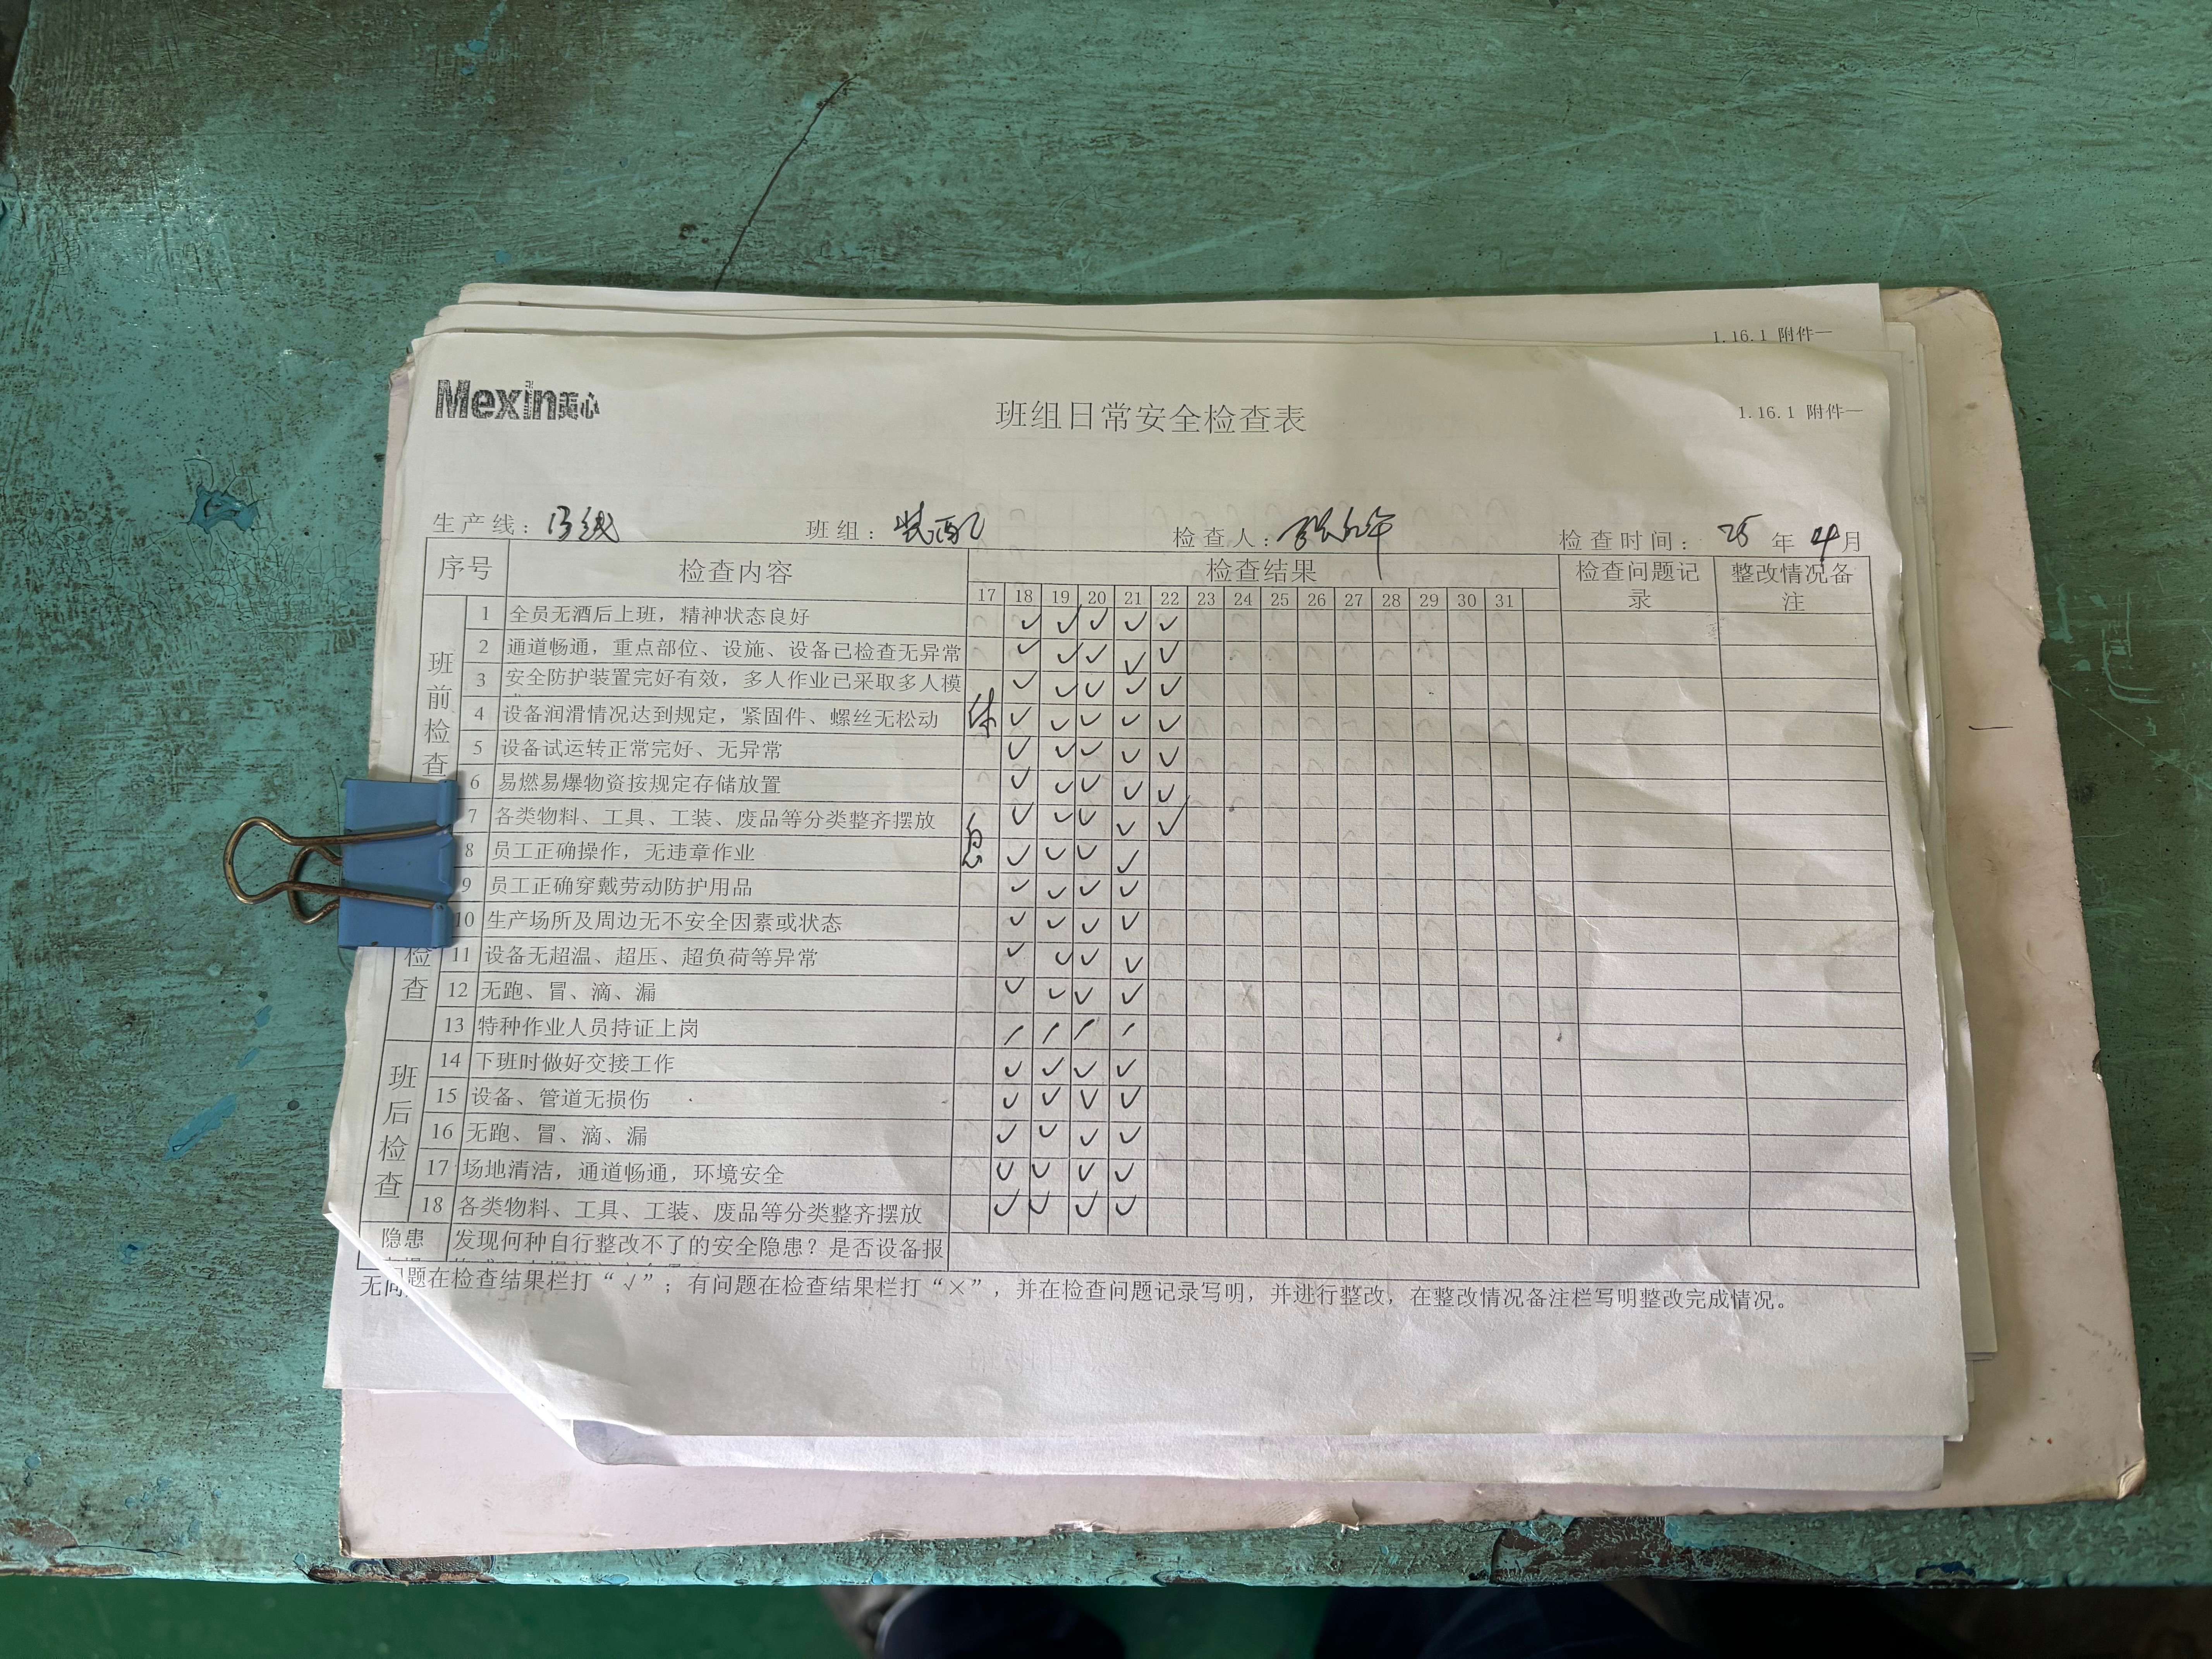 1.16.1 附件一
Mexin美心
班组日常安全检查表
1.16.1 附件一
生产线： 班组：装配 检查人： 检查时间：25年4月
序号 检查内容 检查结果 检查问题记录 整改情况备注
17 18 19 20 21 22 23 24 25 26 27 28 29 30 31
班前检查
1 全员无酒后上班，精神状态良好 ✓ ✓ ✓ ✓ ✓
2 通道畅通，重点部位、设施、设备已检查无异常 ✓ ✓ ✓ ✓ ✓
3 安全防护装置完好有效，多人作业已采取多人模 ✓ ✓ ✓ ✓ ✓
4 设备润滑情况达到规定，紧固件、螺丝无松动 休 ✓ ✓ ✓ ✓ ✓
5 设备试运转正常完好、无异常 ✓ ✓ ✓ ✓ ✓
6 易燃易爆物资按规定存储放置 ✓ ✓ ✓ ✓ ✓
7 各类物料、工具、工装、废品等分类整齐摆放 ✓ ✓ ✓ ✓ ✓
8 员工正确操作，无违章作业 息 ✓ ✓ ✓ ✓
9 员工正确穿戴劳动防护用品 ✓ ✓ ✓ ✓
检查
10 生产场所及周边无不安全因素或状态 ✓ ✓ ✓ ✓
11 设备无超温、超压、超负荷等异常 ✓ ✓ ✓ ✓
12 无跑、冒、滴、漏 ✓ ✓ ✓ ✓
13 特种作业人员持证上岗 / / / /
班后检查
14 下班时做好交接工作 ✓ ✓ ✓ ✓
15 设备、管道无损伤 ✓ ✓ ✓ ✓
16 无跑、冒、滴、漏 ✓ ✓ ✓ ✓
17 场地清洁，通道畅通，环境安全 ✓ ✓ ✓ ✓
18 各类物料、工具、工装、废品等分类整齐摆放 ✓ ✓ ✓ ✓
隐患 发现何种自行整改不了的安全隐患？是否设备报
无问题在检查结果栏打“√”；有问题在检查结果栏打“×”，并在检查问题记录写明，并进行整改，在整改情况备注栏写明整改完成情况。